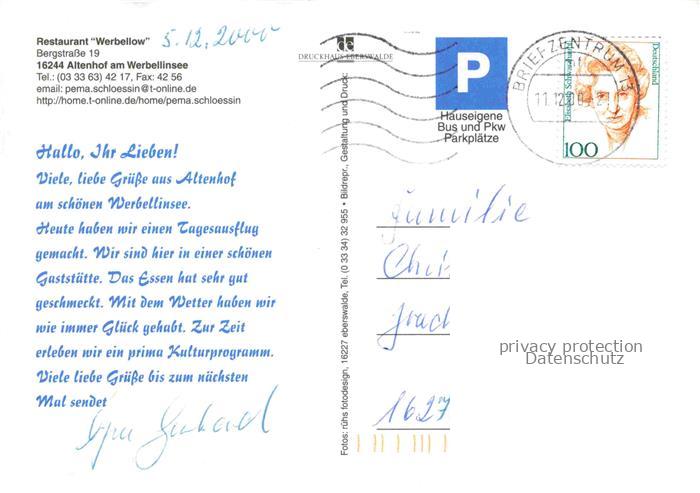 Restaurant "Werbellow"
Bergstraße 19
16244 Altenhof am Werbellinsee
Tel.: (03 33 63) 42 17, Fax: 42 56
email: pema.schloessin@t-online.de
http://home.t-online.de/home/pema.schloessin
5.12.2000
Hallo, Ihr Lieben!
Viele, liebe Grüße aus Altenhof
am schönen Werbellinsee.
Heute haben wir einen Tagesausflug
gemacht. Wir sind hier in einer schönen
Gaststätte. Das Essen hat sehr gut
geschmeckt. Mit dem Wetter haben wir
wie immer Glück gehabt. Zur Zeit
erleben wir ein prima Kulturprogramm.
Viele liebe Grüße bis zum nächsten
Mal sendet
Opa Gerhard
DRUCKHAUS EBERSWALDE
Fotos: rühs fotodesign, 16227 eberswalde, Tel. (0 33 34) 32 955 • Bildrepr., Gestaltung und Druck:
P
Hauseigene
Bus und Pkw
Parkplätze
BRIEFZENTRUM 13
Deutschland
100
Familie
1627
privacy protection
Datenschutz